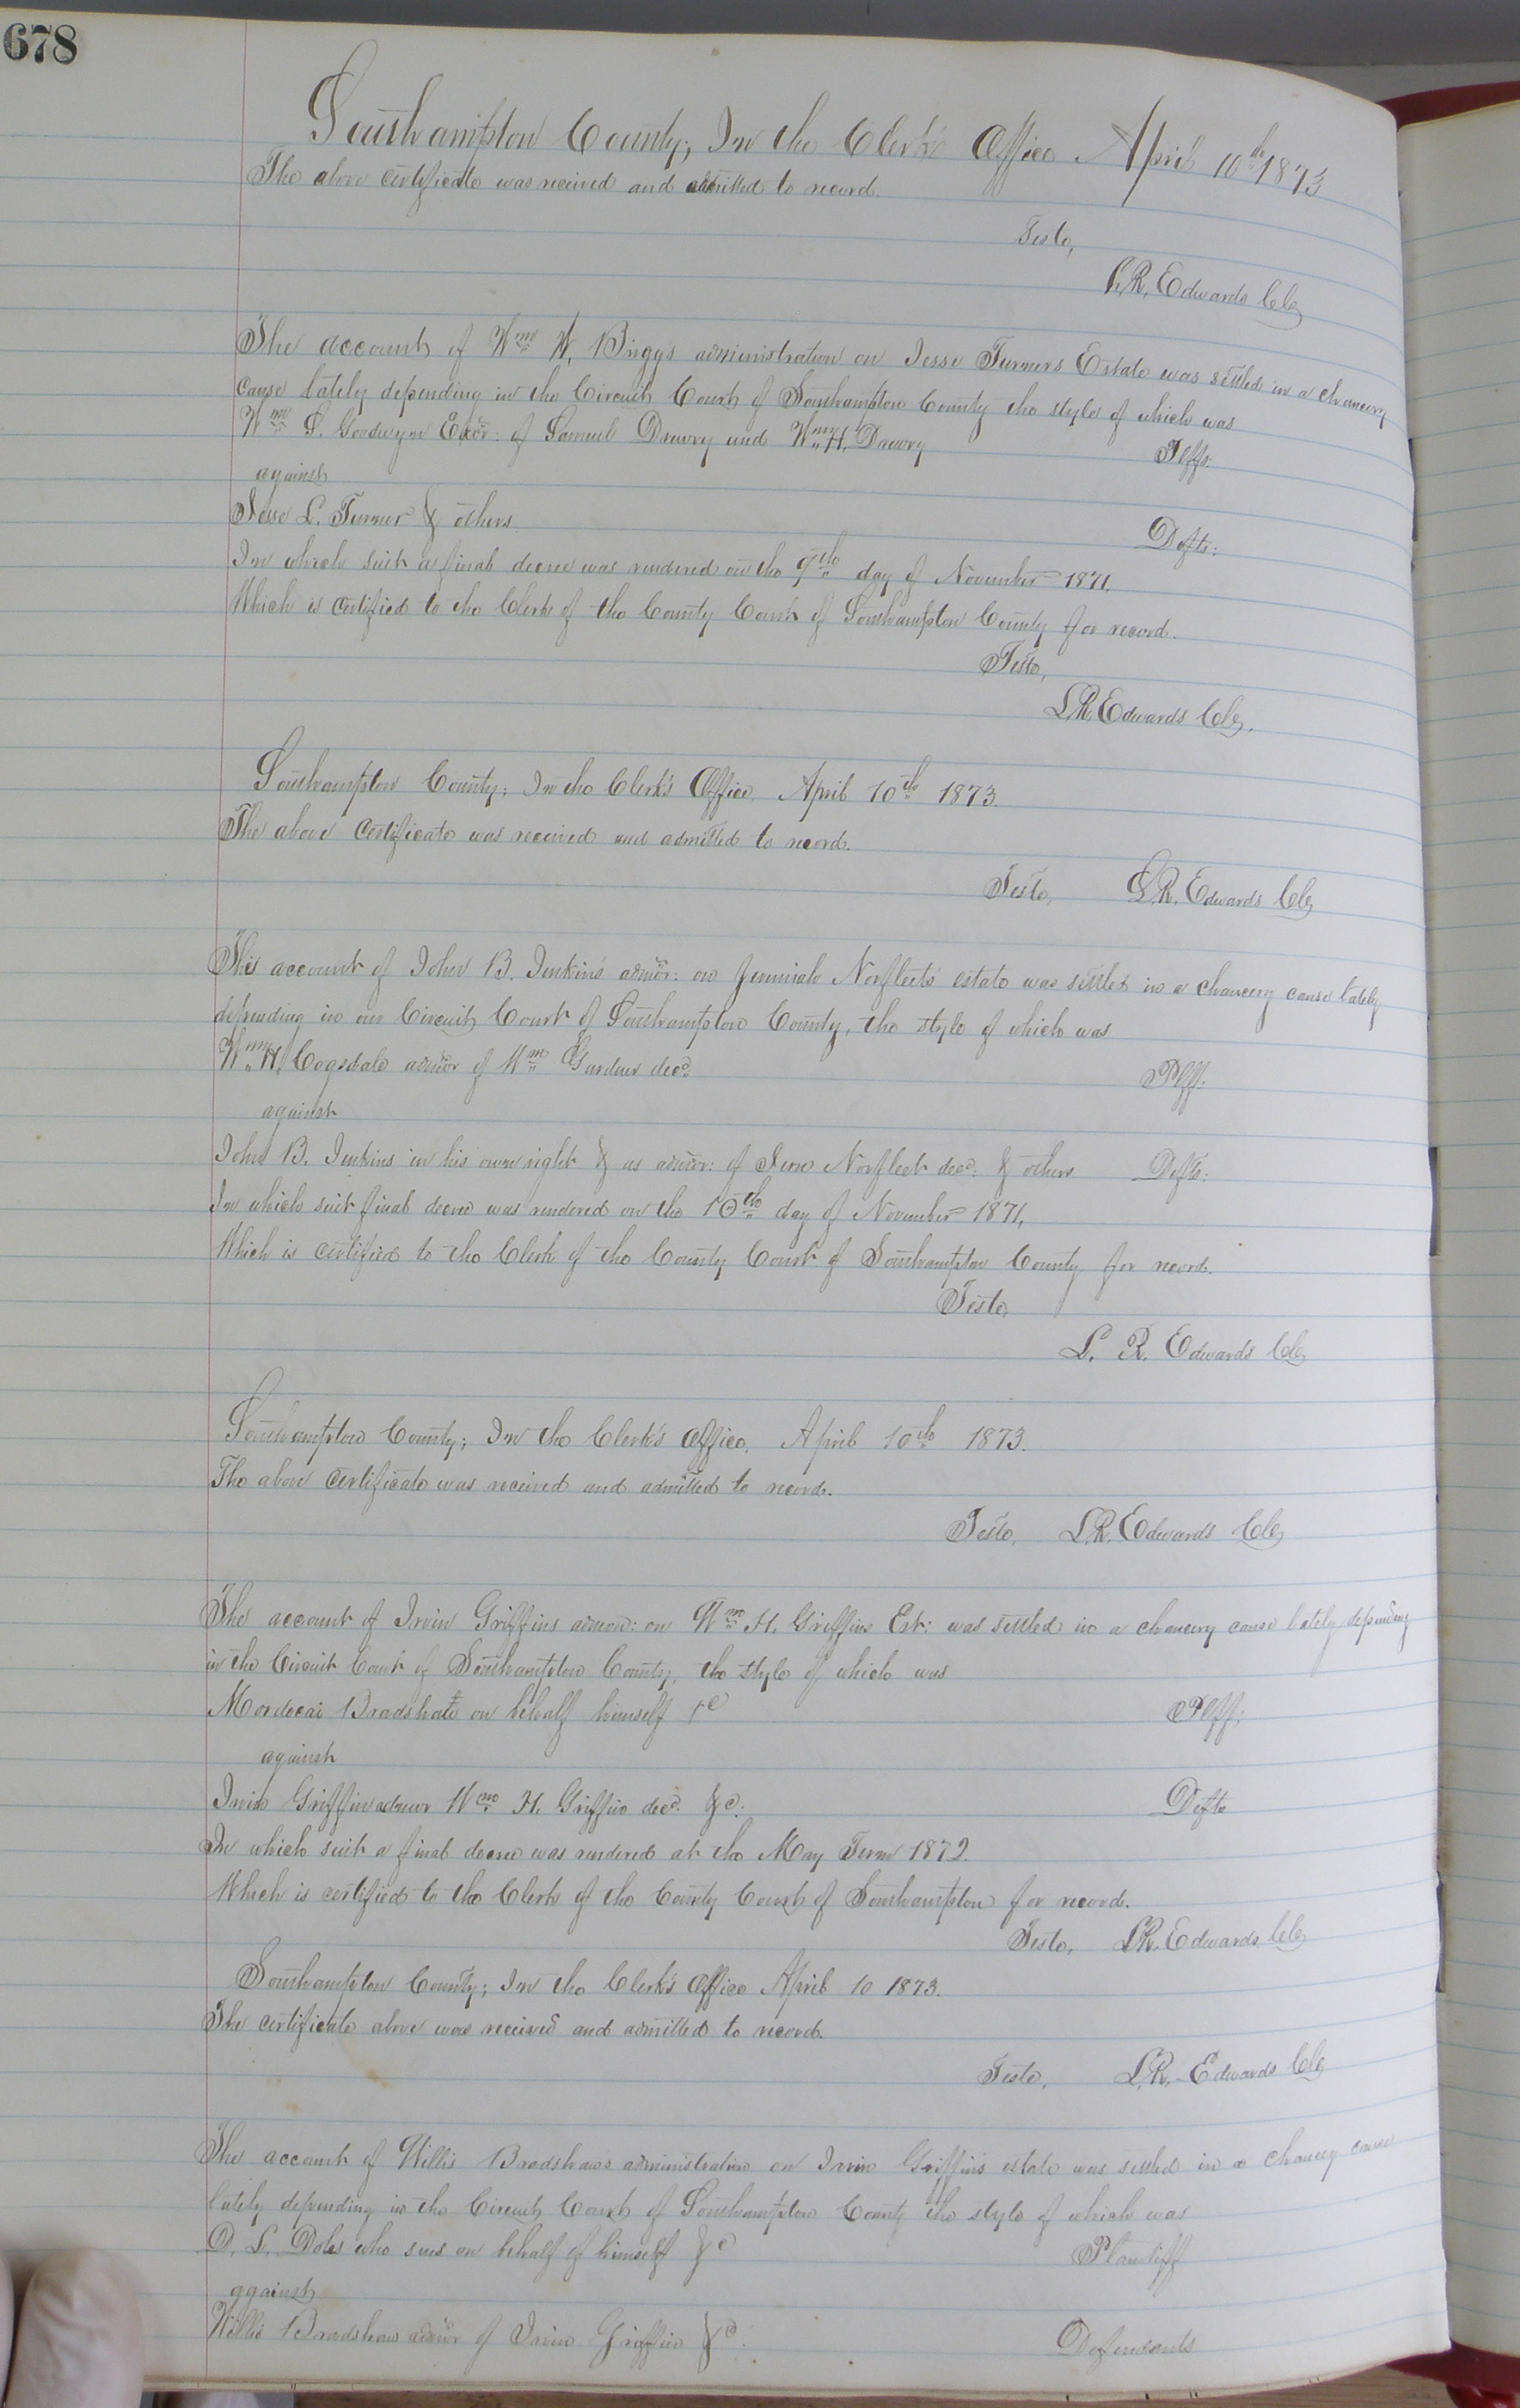 678
Southampton County; In the Clerk's Office April 10th 1873
The above certificate was received and admitted to record.
Teste,
L.R. Edwards Clk
The account of Wm W. Briggs administration on Jesse Turners Estate was settled in a chancery
cause lately depending in the Circuit Court of Southampton County the style of which was
Wm S. Goodwyn Exor: of Samuel Drewry and Wm H. Drewry Plffs.
against
Jesse L. Turner & others Defts:
In which suit a final decree was rendered on the 9th day of November 1871,
Which is certified to the Clerk of the County Court of Southampton County for record.
Teste,
L.R. Edwards Clk.
Southampton County; In the Clerk's Office. April 10th 1873.
The above certificate was received and admitted to record.
Teste, L.R. Edwards Clk
The account of John B. Jenkins admor: on Jeremiah Norfleets estate was settled in a chancery cause lately
depending in our Circuit Court of Southampton County, the style of which was
Wm H. Cogsdale admor of Wm Gardner decd Plff.
against
John B. Jenkins in his own right & as admor: of Norfleet decd. & others Defts:
In which suit final decree was rendered on the 10th day of November 1871,
Which is certified to the Clerk of the County Court of Southampton County for record.
Teste,
L. R. Edwards Clk
Southampton County; In the Clerk's Office. April 10th 1873.
The above certificate was received and admitted to record.
Teste, L.R. Edwards Clk
The account of Irvin Griffins admor: on Wm H. Griffins Est: was settled in a chancery cause lately depending
in the Circuit Court of Southampton County, the style of which was
Mordecai on behalf himself &c Plff:
against
Irvin Griffin admor Wm H. Griffin decd. &c. Defts
In which suit a final decree was rendered at the May Term 1872.
Which is certified to the Clerk of the County Court of Southampton for record.
Teste, L.R. Edwards Clk
Southampton County; In the Clerk's Office April 10 1873.
The certificate above was received and admitted to record.
Teste, L.R. Edwards Clk
The account of Willis Bradshaws administration on Irvin Griffin's estate was settled in a chancery cause
lately depending in the Circuit Court of Southampton County the style of which was
D. L. Doles who sues on behalf of himself &c Plantiff
against
Willis Bradshaw admor of Irvin Griffin &c. Defendants